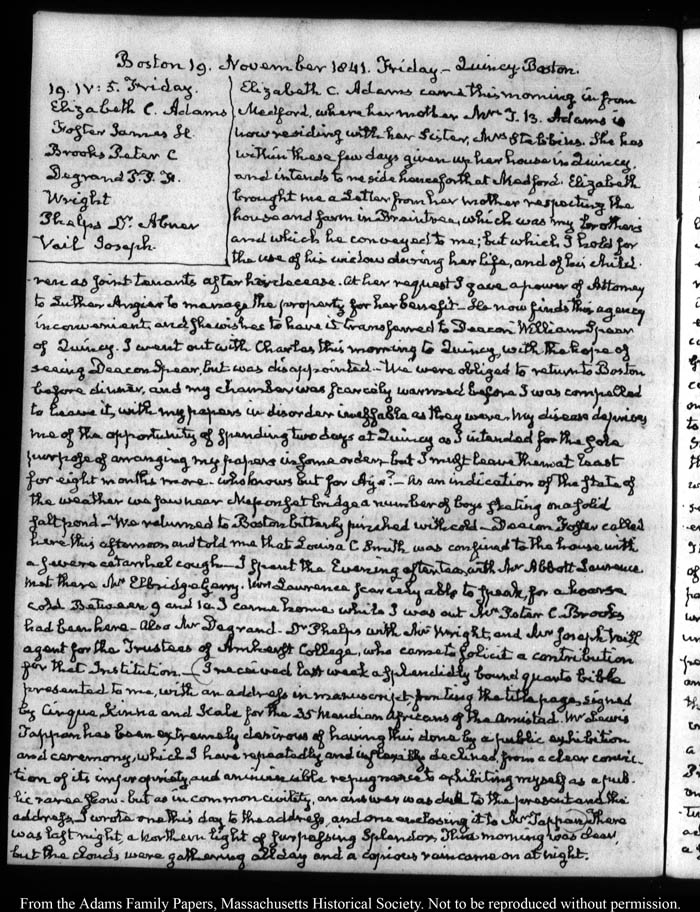 Boston 19. November 1841. Friday – Quincy Boston.
19. IV: 5. Friday.
Elizabeth C. Adams
Foster James H.
Brooks Peter C
Degrand P. P. F.
Wright
Phelps Dr. Abner
Vail Joseph.
Elizabeth C. Adams came this morning in from
Medford, where her mother Mrs T. B. Adams is
now residing with her Sister, Mrs Stebbins. She has
within these few days given up her house in Quincy,
and intends to reside henceforth at Medford. Elizabeth
brought me a Letter from her mother respecting the
house and farm in Braintree, which was my brother's
and which he conveyed to me; but which I hold for
the use of his widow during her life, and of his child-
ren as joint tenants after her decease. At her request I gave a power of Attorney
to Luther Angier to manage the property for her benefit – He now finds this agency
inconvenient, and she wishes to have it transferred to Deacon William Spear
of Quincy. I went out with Charles this morning to Quincy, with the hope of
seeing Deacon Spear, but was disappointed – We were obliged to return to Boston
before dinner, and my chamber was scarcely warmed before I was compelled
to leave it, with my papers in disorder ineffable as they were. My disease deprives
me of the opportunity of spending two days at Quincy as I intended for the sole
purpose of arranging my papers in some order, but I must leave them at least
for eight months more – who knows but for Aye? – As an indication of the state of
the weather we saw near Neponset bridge a number of boys skating on a solid
salt pond – We returned to Boston bitterly pinched with cold – Deacon Foster called
here this afternoon and told me that Louisa C Smith was confined to the house with
a severe catarrhal cough – I spent the Evening after tea, with Mr Abbott Lawrence
met there Mr Elbridge Gerry. Mrs Lawrence scarcely able to speak, for a hoarse
cold Between 9 and 10 I came home while I was out Mr Peter C. Brooks
had been here – Also Mr Degrand – Dr Phelps with Mr Wright, and Mr Joseph Vaill
agent for the Trustees of Amherst College, who came to solicit a contribution
for that Institution. – I received last week a splendidly bound quarto bible
presented to me, with an address in manuscript fronting the title page, signed
by Cinque, Kinna and Kale for the 35 Mendian Africans of the Amistad. Mr Lewis
Tappan has been extremely desirous of having this done by a public exhibition
and ceremony, which I have repeatedly and inflexibly declined, from a clear convic-
tion of its impropriety, and an invincible repugnance to exhibiting myself as a pub-
lic raree show – but as in common civility, an answer was due to the present and the
address, I wrote one this day to the address, and one enclosing it to Mr Tappan. There
was last night, a Northern light of surpassing splendor. This morning was clear,
but the clouds were gathering all day and a copious rain came on at night.
From the Adams Family Papers, Massachusetts Historical Society. Not to be reproduced without permission.